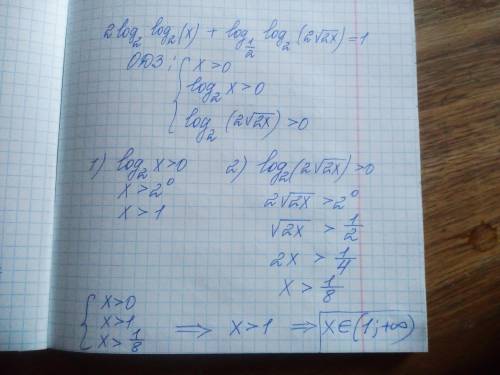 2log₂ log₂(x) + log_{1/2} log₂(2√2x) = 1
ОДЗ: { x > 0
log₂ x > 0
log₂ (2√2x) > 0
1) log₂ x > 0
x > 2⁰
x > 1
2) log₂(2√2x) > 0
2√2x > 2⁰
√2x > 1/2
2x > 1/4
x > 1/8
{ x > 0
x > 1
x > 1/8
⟹ x > 1 ⟹ x ∈ (1; +∞)